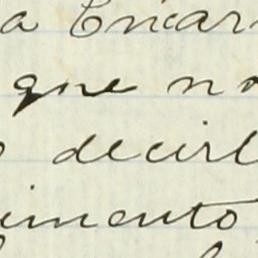 a Encar
que no
decirl
imento